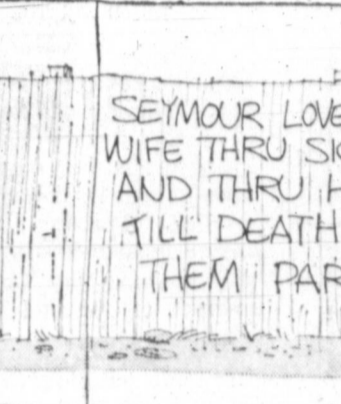 SEYMOUR LOVE
WIFE THRU SI
AND THRU H
TILL DEATH
THEM PAR